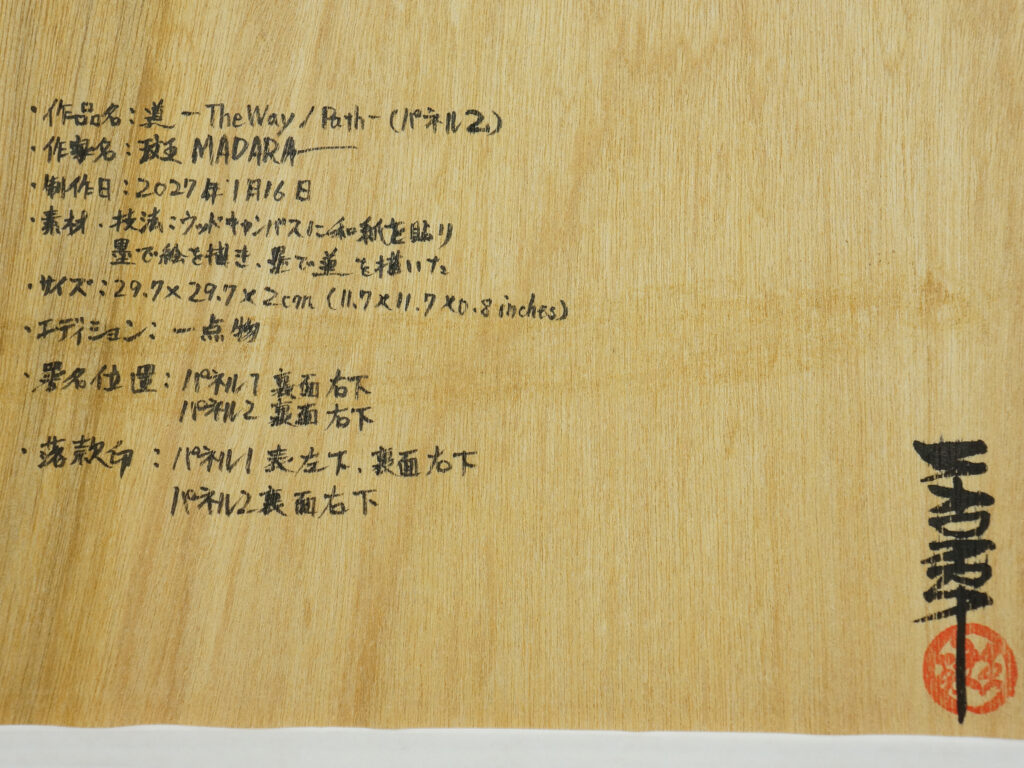 ・作品名：道 -The Way / Path- (パネル2)
・作家名：斑 MADARA
・制作日：2027年1月16日
・素材・技法：ウッドキャンバスに和紙を貼り
墨で絵を描き、墨で道を描いた
・サイズ：29.7×29.7×2cm (11.7×11.7×0.8 inches)
・エディション：一点物
・署名位置：パネル1 裏面右下
パネル2 裏面右下
・落款印：パネル1 表・左下、裏面右下
パネル2 裏面右下